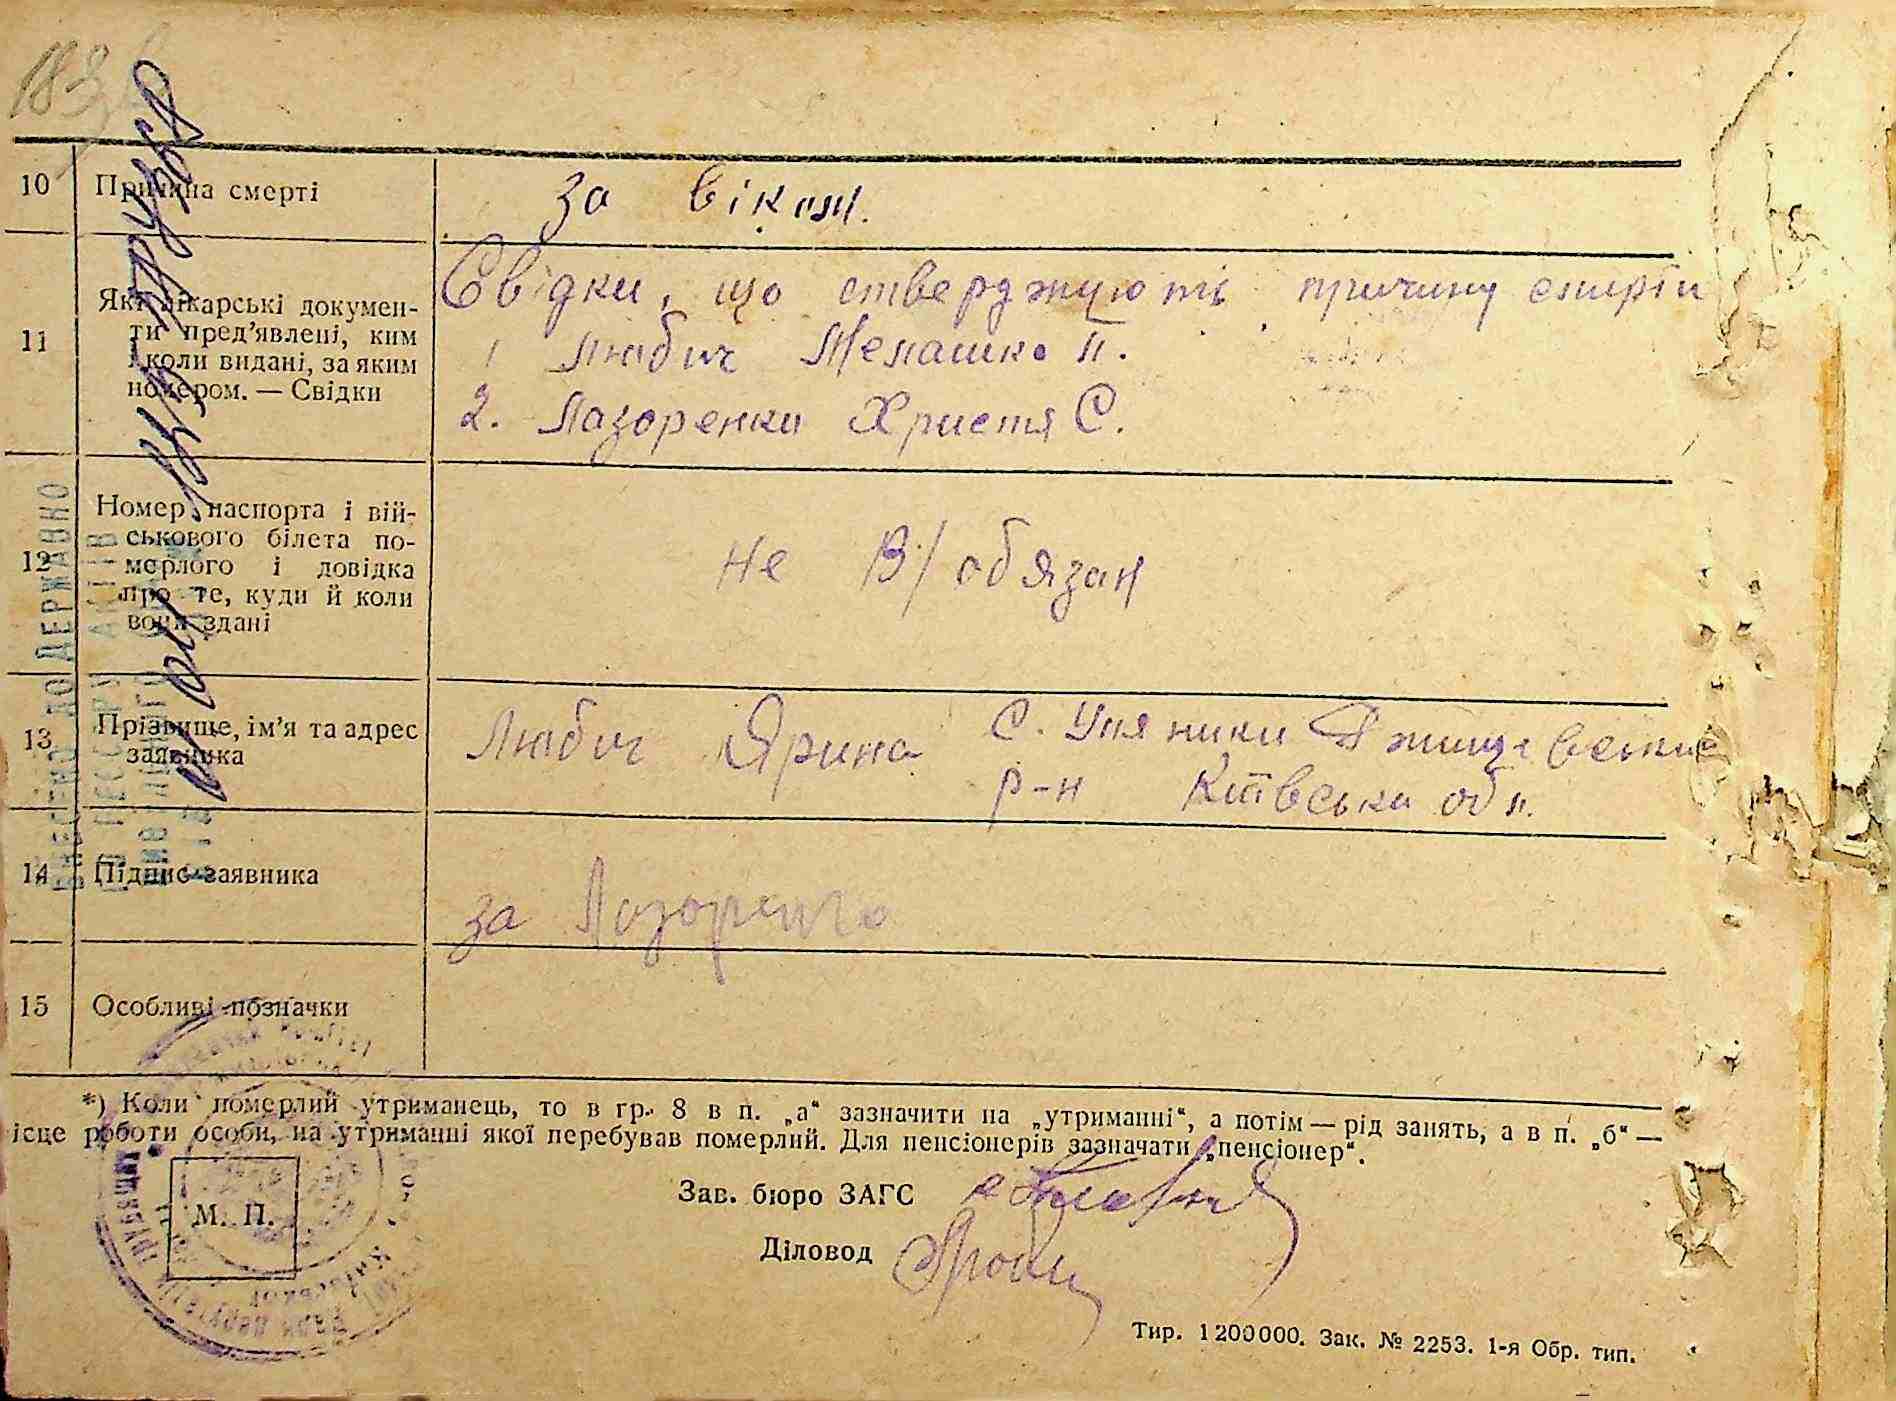 183
10 Причина смерті
за віком.
11 Які лікарські докумен-
ти пред'явлені, ким
і коли видані, за яким
номером. — Свідки
Свідки, що стверджують причину смерти
1 Любич Мелашка П.
2. Лазоренки Христя С.
12 Номер паспорта і вій-
ськового білета по-
мерлого і довідка
про те, куди й коли
вони здані
не В/обязан
13 Прізвище, ім'я та адрес
заявника
Любич Ярина с. Уляники Ржищевськи
р-н Київська обл.
14 Підпис заявника
за Лазоренко
15 Особливі позначки
*) Коли померлий утриманець, то в гр. 8 в п. „а“ зазначити на „утриманні“, а потім — рід занять, а в п. „б“ —
ісце роботи особи, на утриманні якої перебував померлий. Для пенсіонерів зазначати „пенсіонер“.
М. П.
Зав. бюро ЗАГС
Діловод
Тир. 1200000. Зак. № 2253. 1-я Обр. тип.
ВНЕСЕНО ДО ДЕРЖАВНО